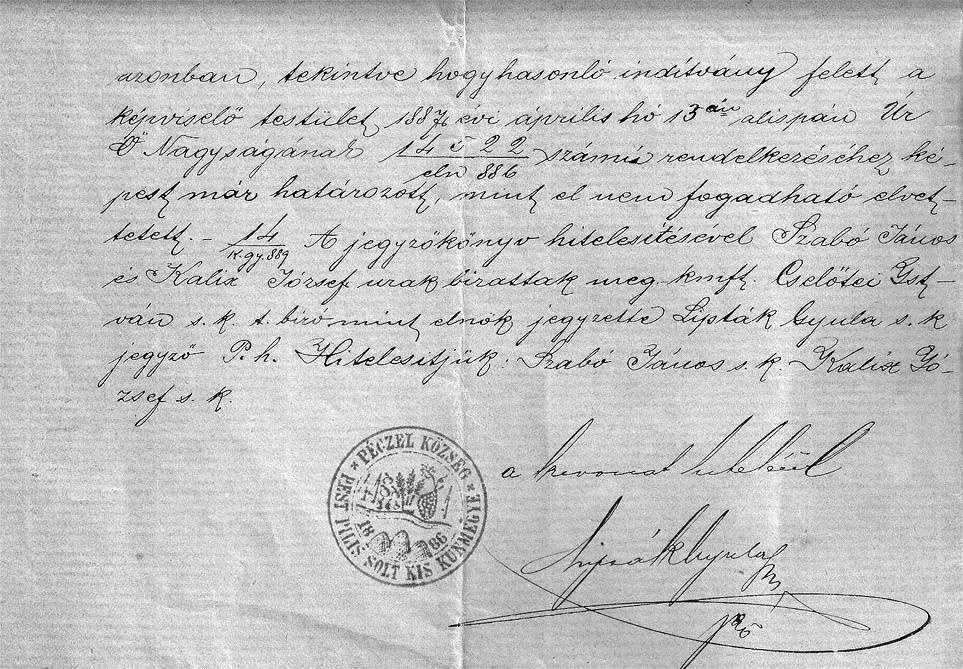 azonban, tekintve hogy hasonló indítvány felett a
képviselő testület 1887 évi április hó 13 án alispán Úr
Ő Nagyságának 14522/eln 886 számú rendelkezéséhez ké-
pest már határozott, mint el nem fogadható elvet-
tetett. - 14/K.gy.889 A jegyzőkönyv hitelesítésével Szabó János
és Kalix József urak bizattak meg. kmft. Cselőtei Ist-
ván s. k. t. biró mint elnök jegyzette Lipták Gyula s. k
jegyző P. h. Hitelesítjük. Szabó János s. k. Kalix Jó-
zsef s. k.
a kivonat hiteléül
Lipták Gyula
jző
* PÉCZEL KÖZSÉG *
PEST PILIS SOLT KIS KUN MEGYE
18 86